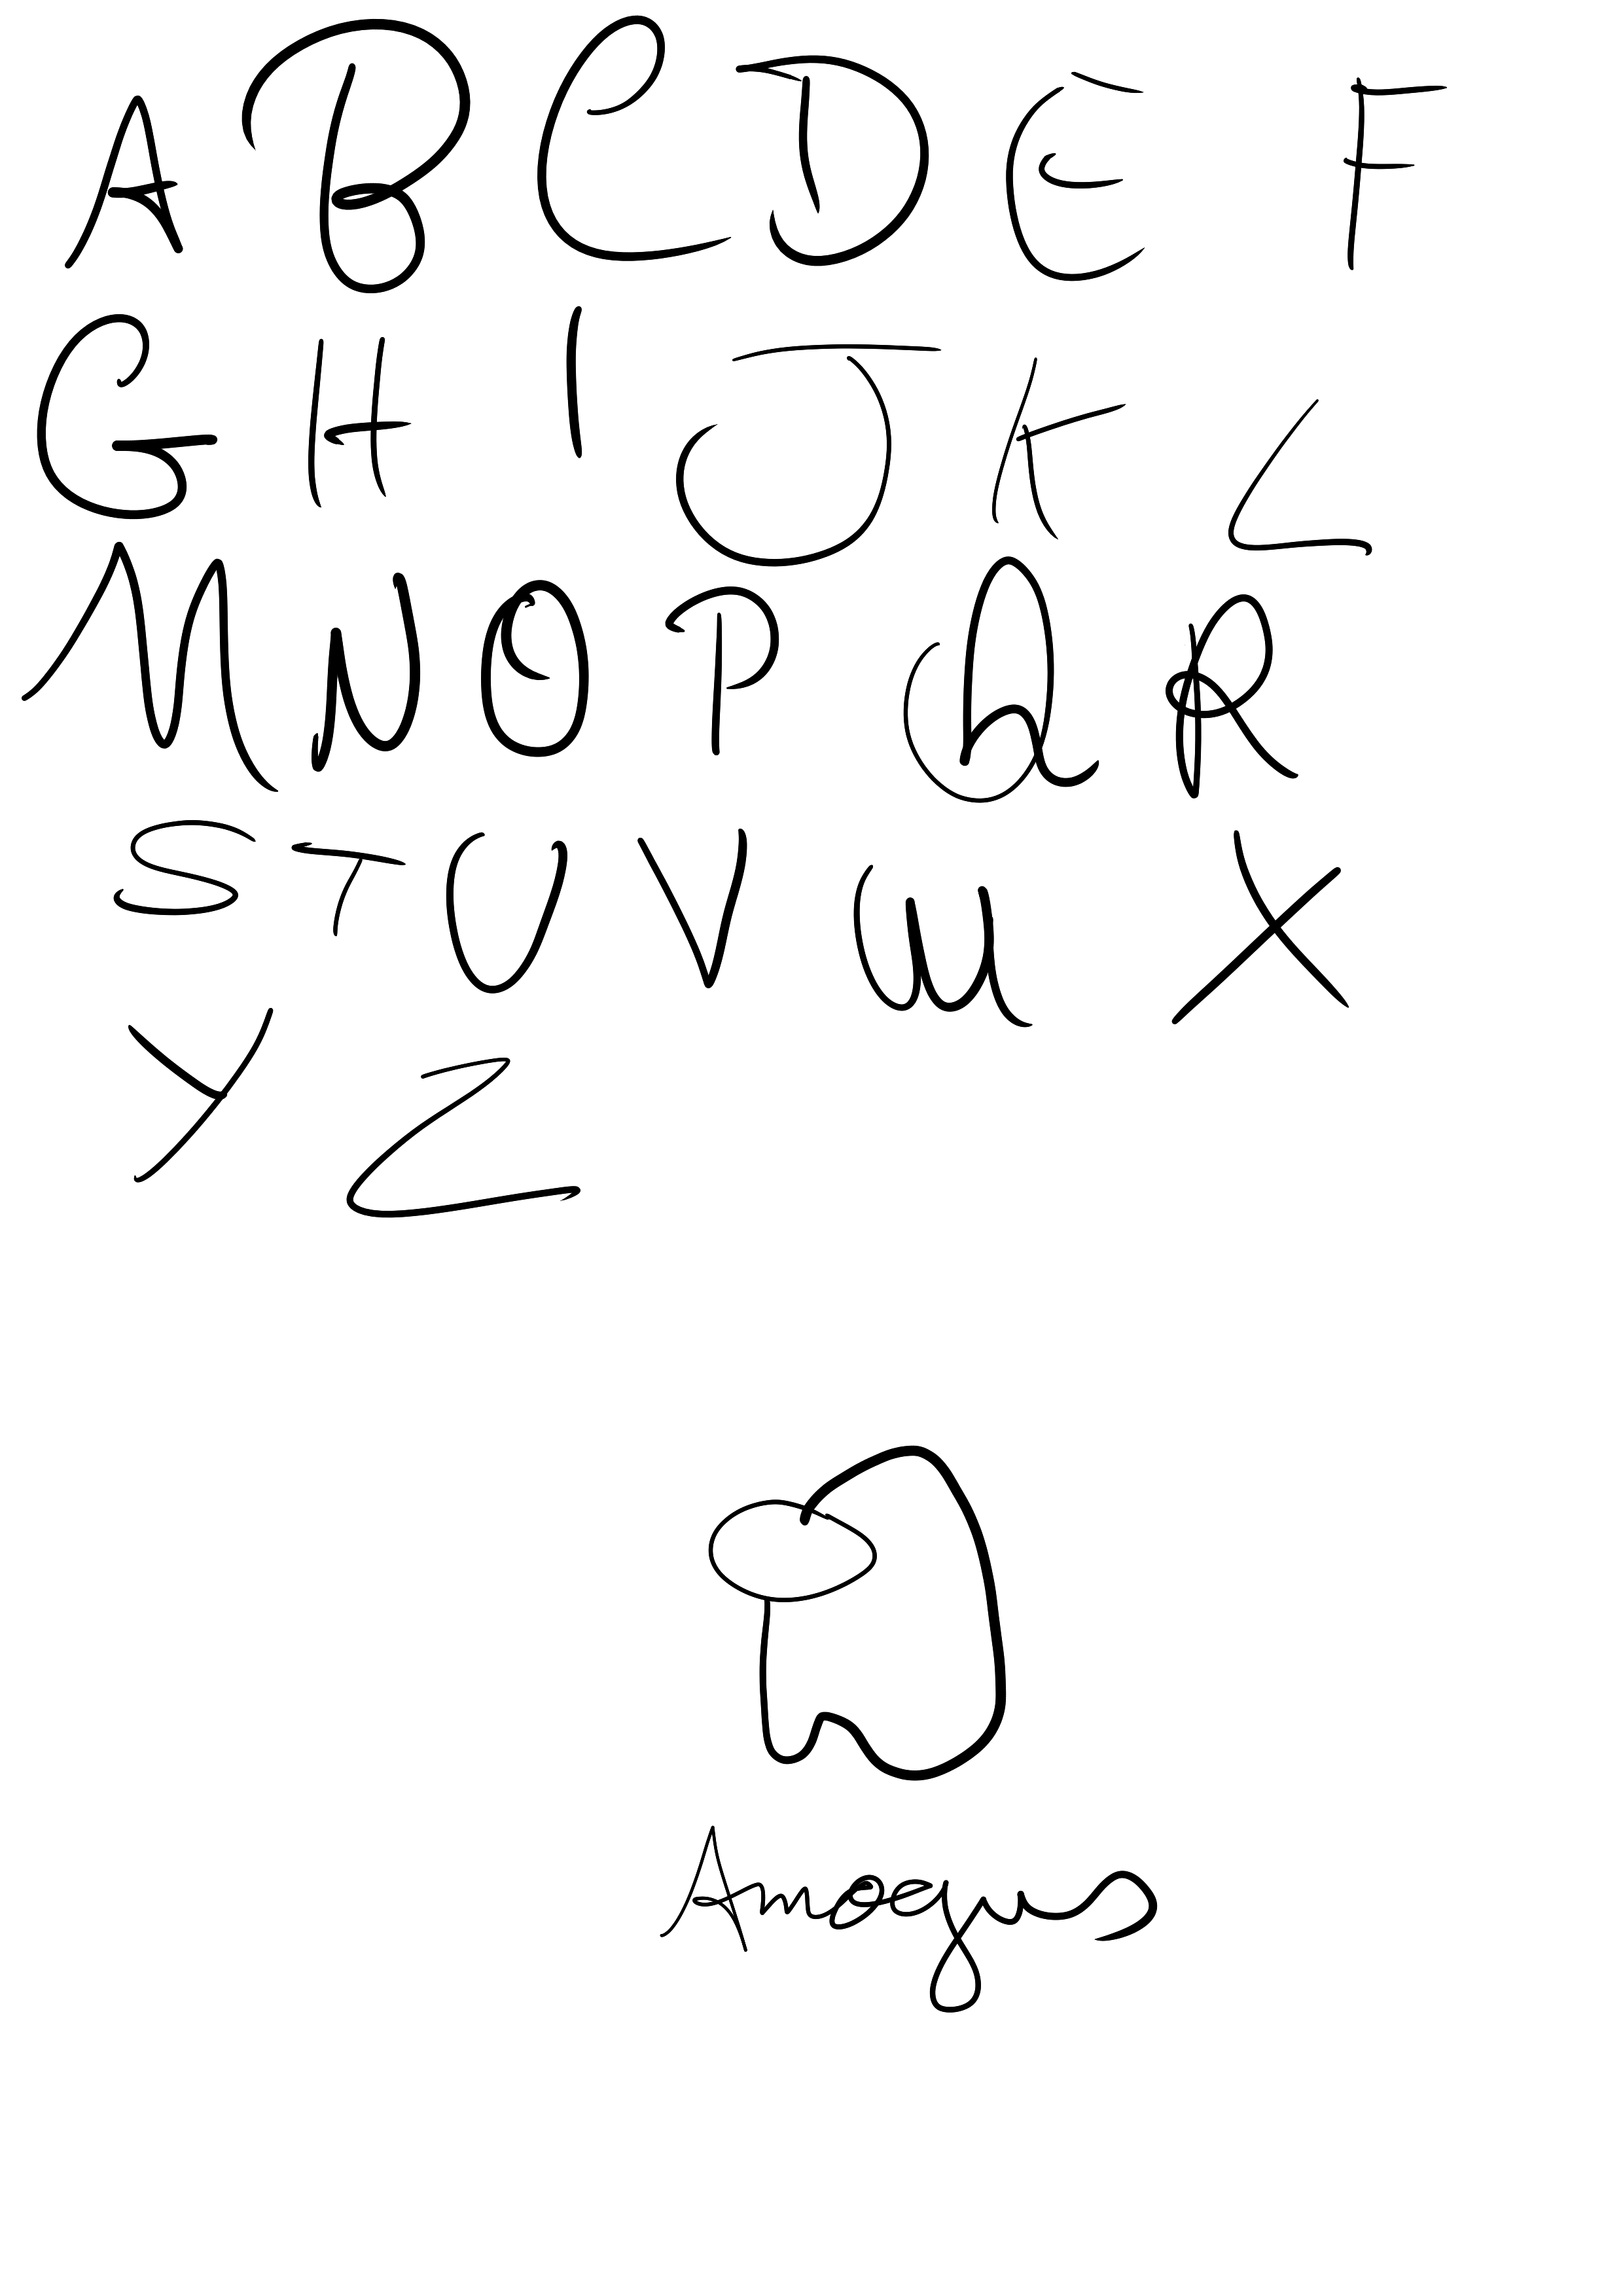 A B C D E F
G H I J K L
M N O P Q R
S T U V W X
Y Z
Amoogus